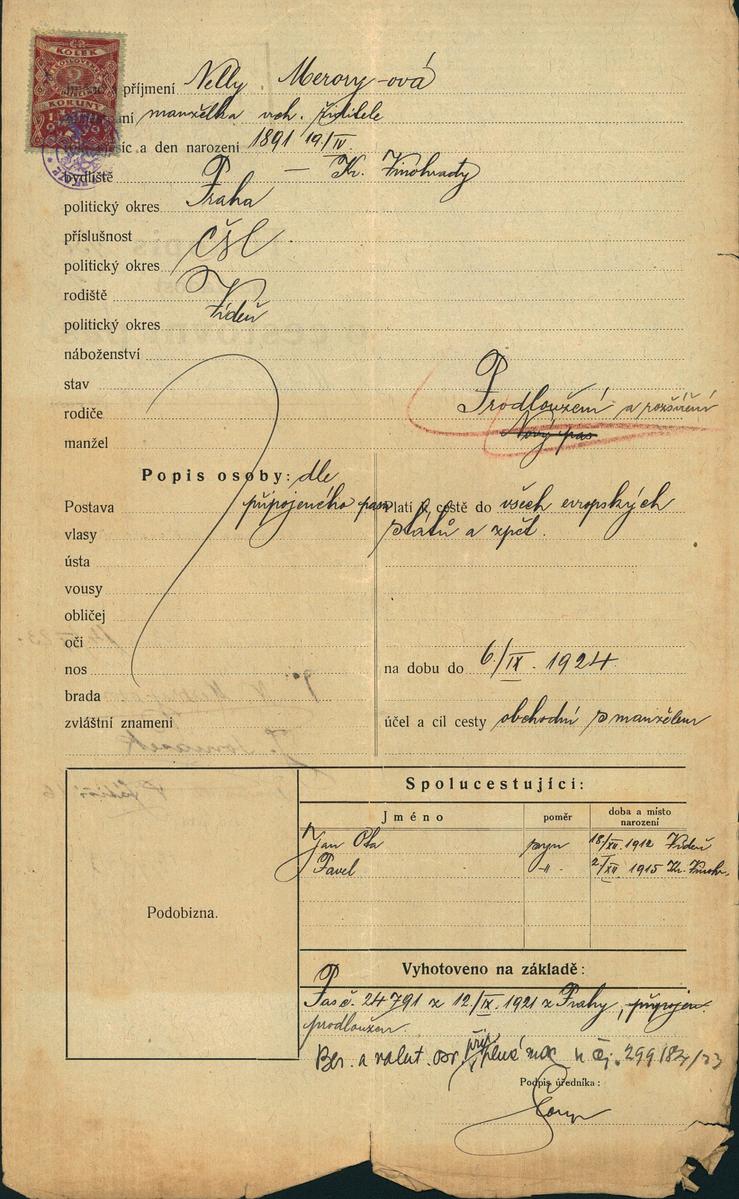 KOLEK
2
KORUNY
1919
příjmení Nelly Merory-ová
manželka vrch. ředitele
a den narození 1891 19./IV.
bydliště Praha – Kr. Vinohrady
politický okres
příslušnost ČSl
politický okres
rodiště Vídeň
politický okres
náboženství
stav
rodiče
manžel
Prodloužení a rozšíření
Nový pas
Popis osoby: dle
připojeného pasu
Postava
vlasy
ústa
vousy
obličej
oči
nos
brada
zvláštní znamení
Platí k cestě do všech evropských
států a zpět.
na dobu do 6./IX. 1924
účel a cíl cesty obchodní s manželem
Podobizna.
Spolucestující:
Jméno poměr doba a místo narození
Jan Ota syn 18/XII. 1912 Vídeň
Pavel -"- 2/XII 1915 Kr. Vinohr.
Vyhotoveno na základě:
Pas č. 24791 z 12./IX. 1921 z Prahy, připojen.
prodloužen
Ber. a valut. při čj. 29918/23
Podpis úředníka: